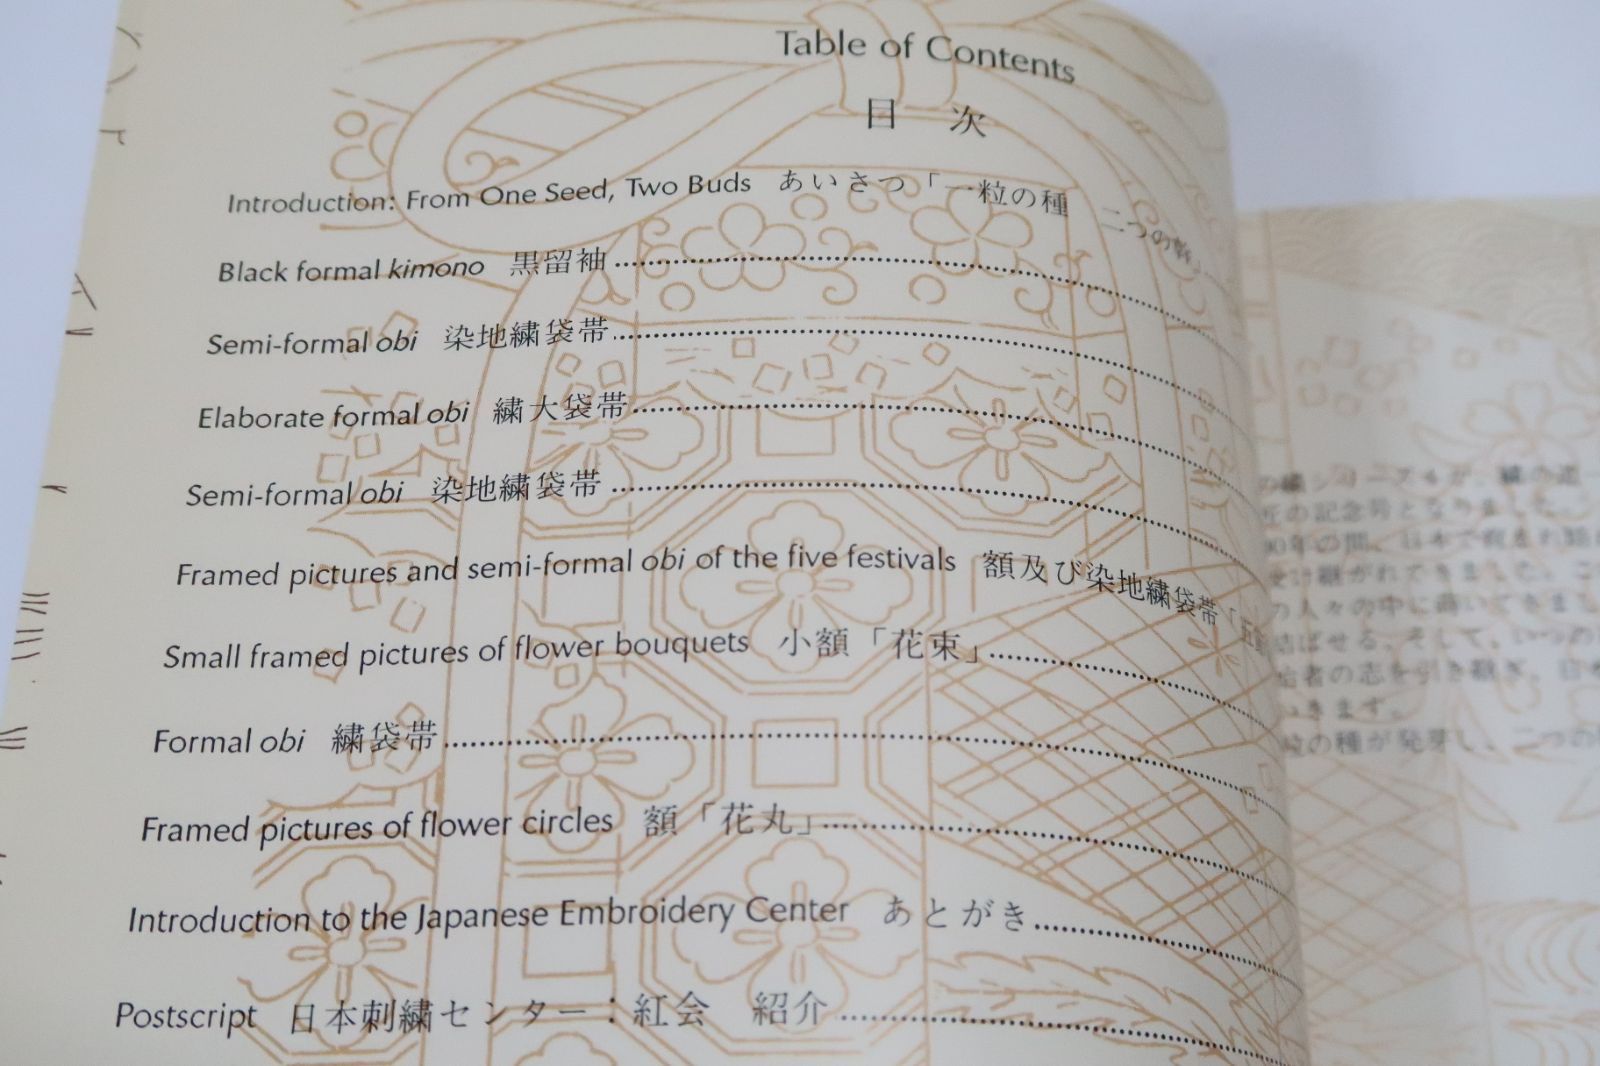 Table of Contents
目 次
Introduction: From One Seed, Two Buds あいさつ「一粒の種 二つの
Black formal kimono 黒留袖
Semi-formal obi 染地繍袋帯
Elaborate formal obi 繍大袋帯
Semi-formal obi 染地繍袋帯
Framed pictures and semi-formal obi of the five festivals 額及び染地繍袋帯「五
Small framed pictures of flower bouquets 小額「花束」
Formal obi 繍袋帯
Framed pictures of flower circles 額「花丸」
Introduction to the Japanese Embroidery Center あとがき
Postscript 日本刺繍センター：紅会 紹介
の繍シリーズ
の記念号となりました。
年の間、日本で
け継がれてきました。こ
の人々の中に
結ばせる。そして、いつの
の志を引き継ぎ、日本
いきます。
粒の種が発芽し、二つの